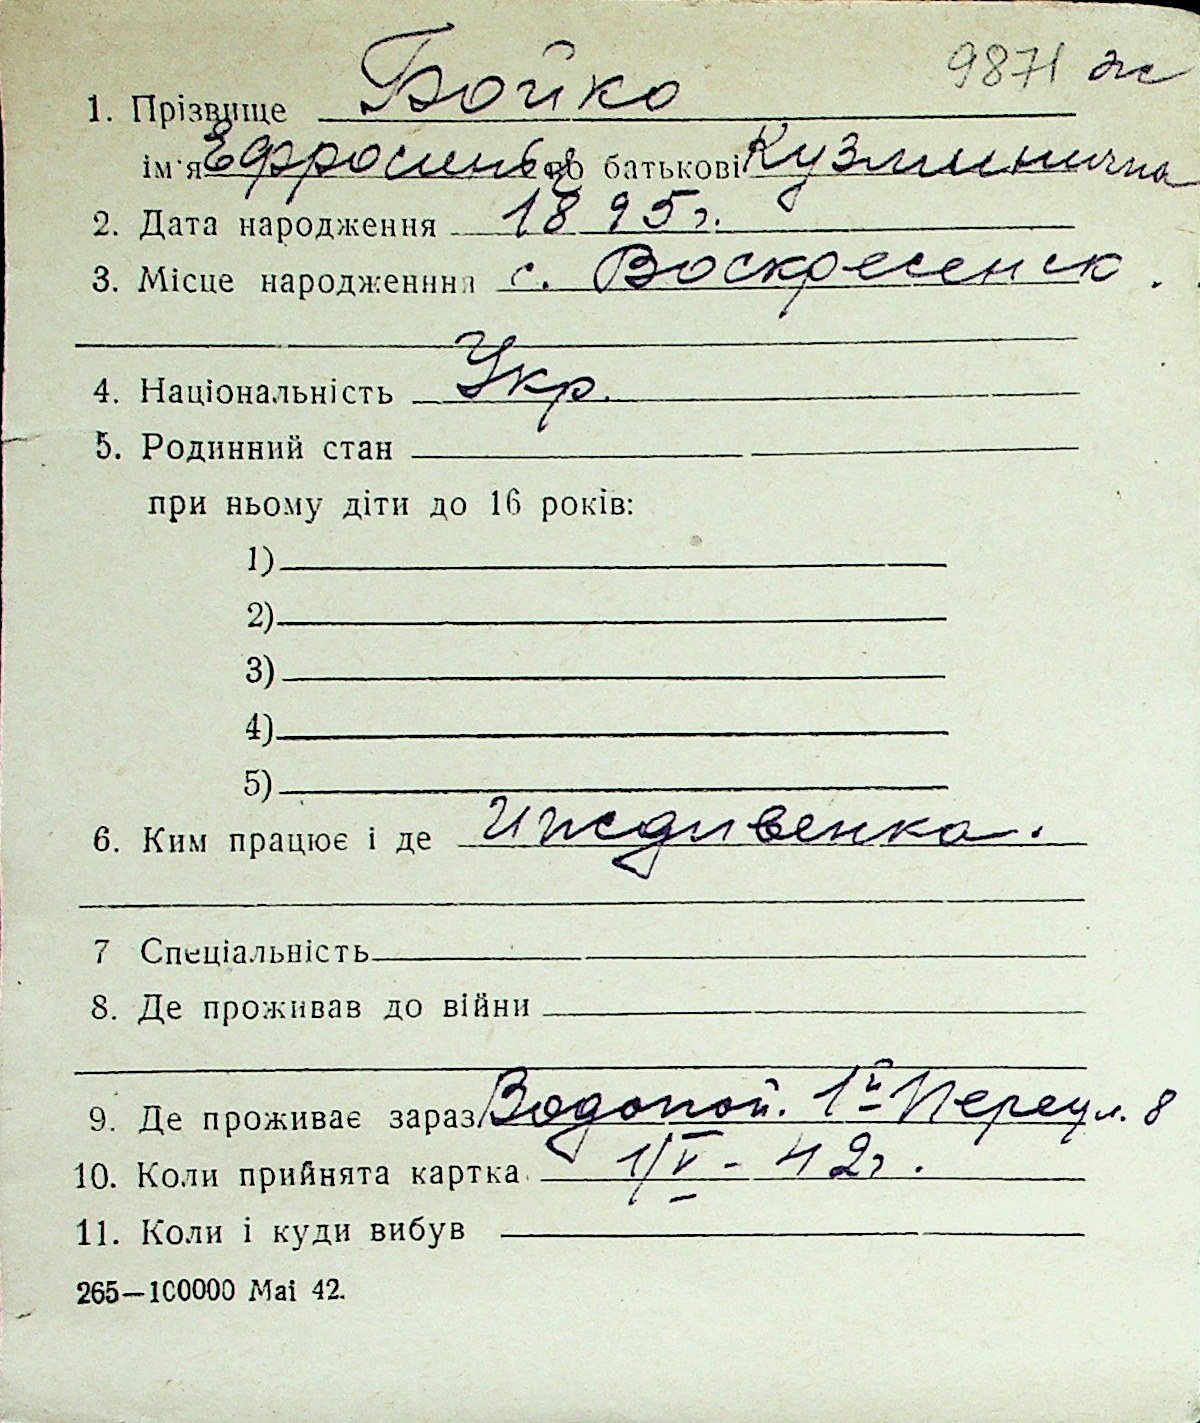 9871 ж
1. Прізвище Бойко
ім'я Ефросинья по батькові Кузминична
2. Дата народження 1895 г.
3. Місце народженння с. Воскресенск.
4. Національність Укр.
5. Родинний стан
при ньому діти до 16 років:
1)
2)
3)
4)
5)
6. Ким працює і де Иждивенка.
7 Спеціальність
8. Де проживав до війни
9. Де проживає зараз Водопой. 1й Переул. 8
10. Коли прийнята картка 1/V - 42 г.
11. Коли і куди вибув
265—100000 Mai 42.